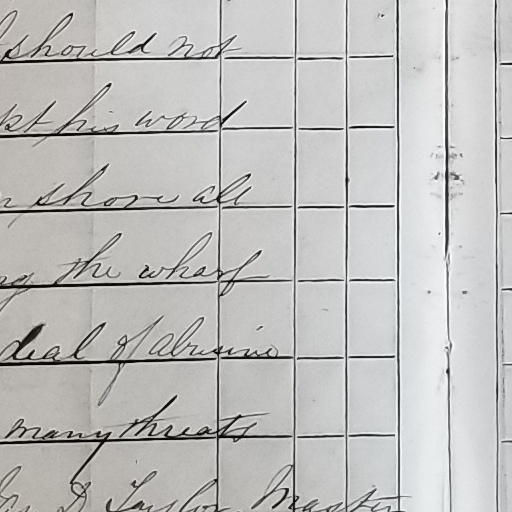 should not
his word
shore all
the wharf
deal of abusive
many threats
D Taylor Master